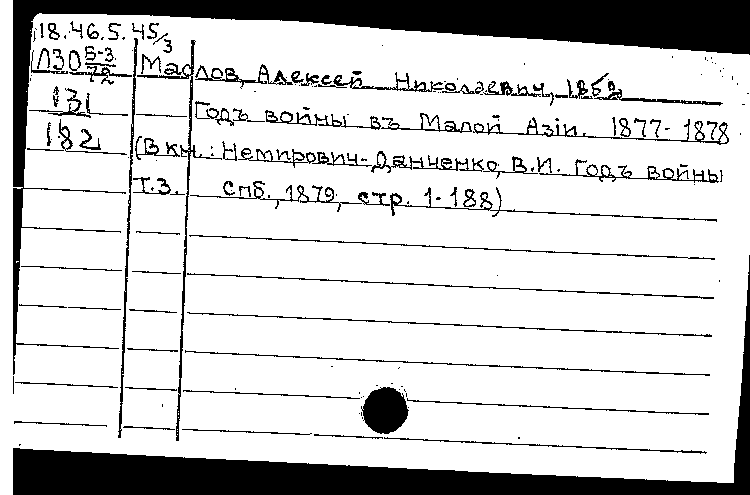 18.46.5.45/3
Л30 Б-3/72 Маслов, Алексей Николаевич, 1852
131 Годъ войны въ Малой Азiи. 1877-1878
182 (В кн.: Немирович-Данченко, В.И. Годъ войны
т.3. Спб., 1879, стр. 1-188)